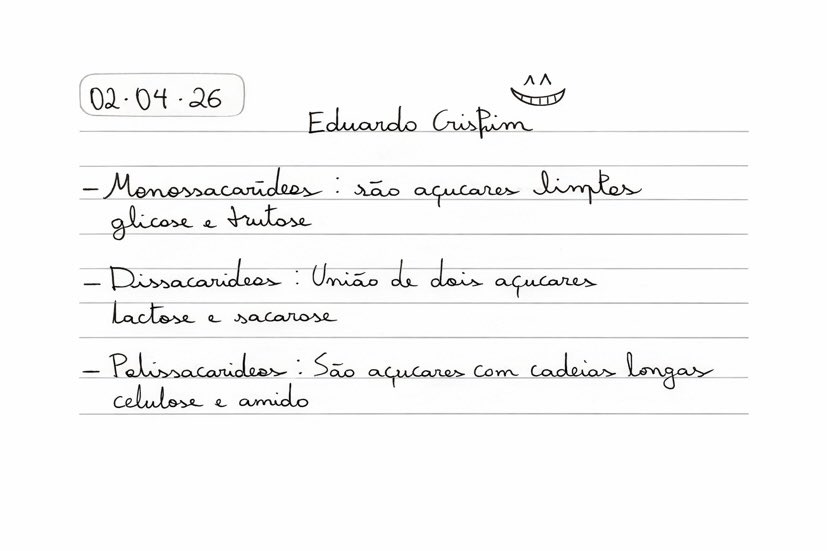 02.04.26
Eduardo Crispim
– Monossacarídeos : são açucares limples
glicose e frutose
– Dissacarideos : União de dois açucares
lactose e sacarose
– Polissacarideos : São açucares com cadeias longas
celulose e amido